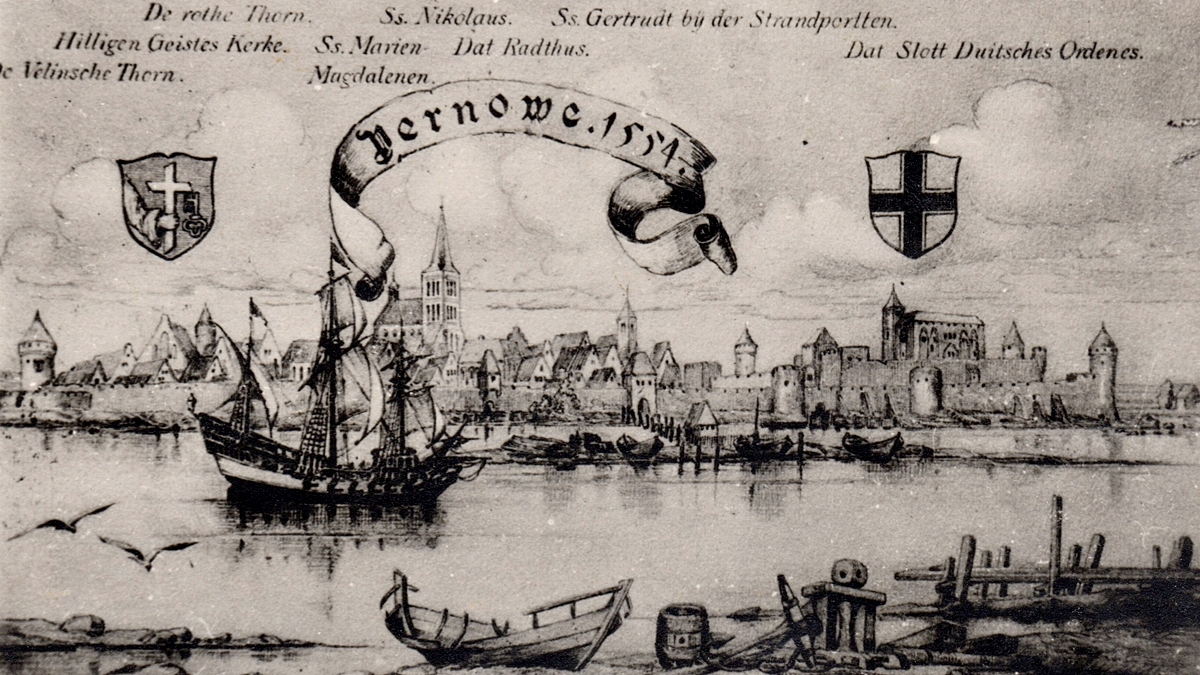 De rothe Thorn. Ss. Nikolaus. Ss. Gertrudt bÿ der Strandportten.
Hilligen Geistes Kerke. Ss. Marien- Dat Radthus. Dat Slott Duitsches Ordenes.
De Velinsche Thorn. Magdalenen.
Pernowe. 1554.